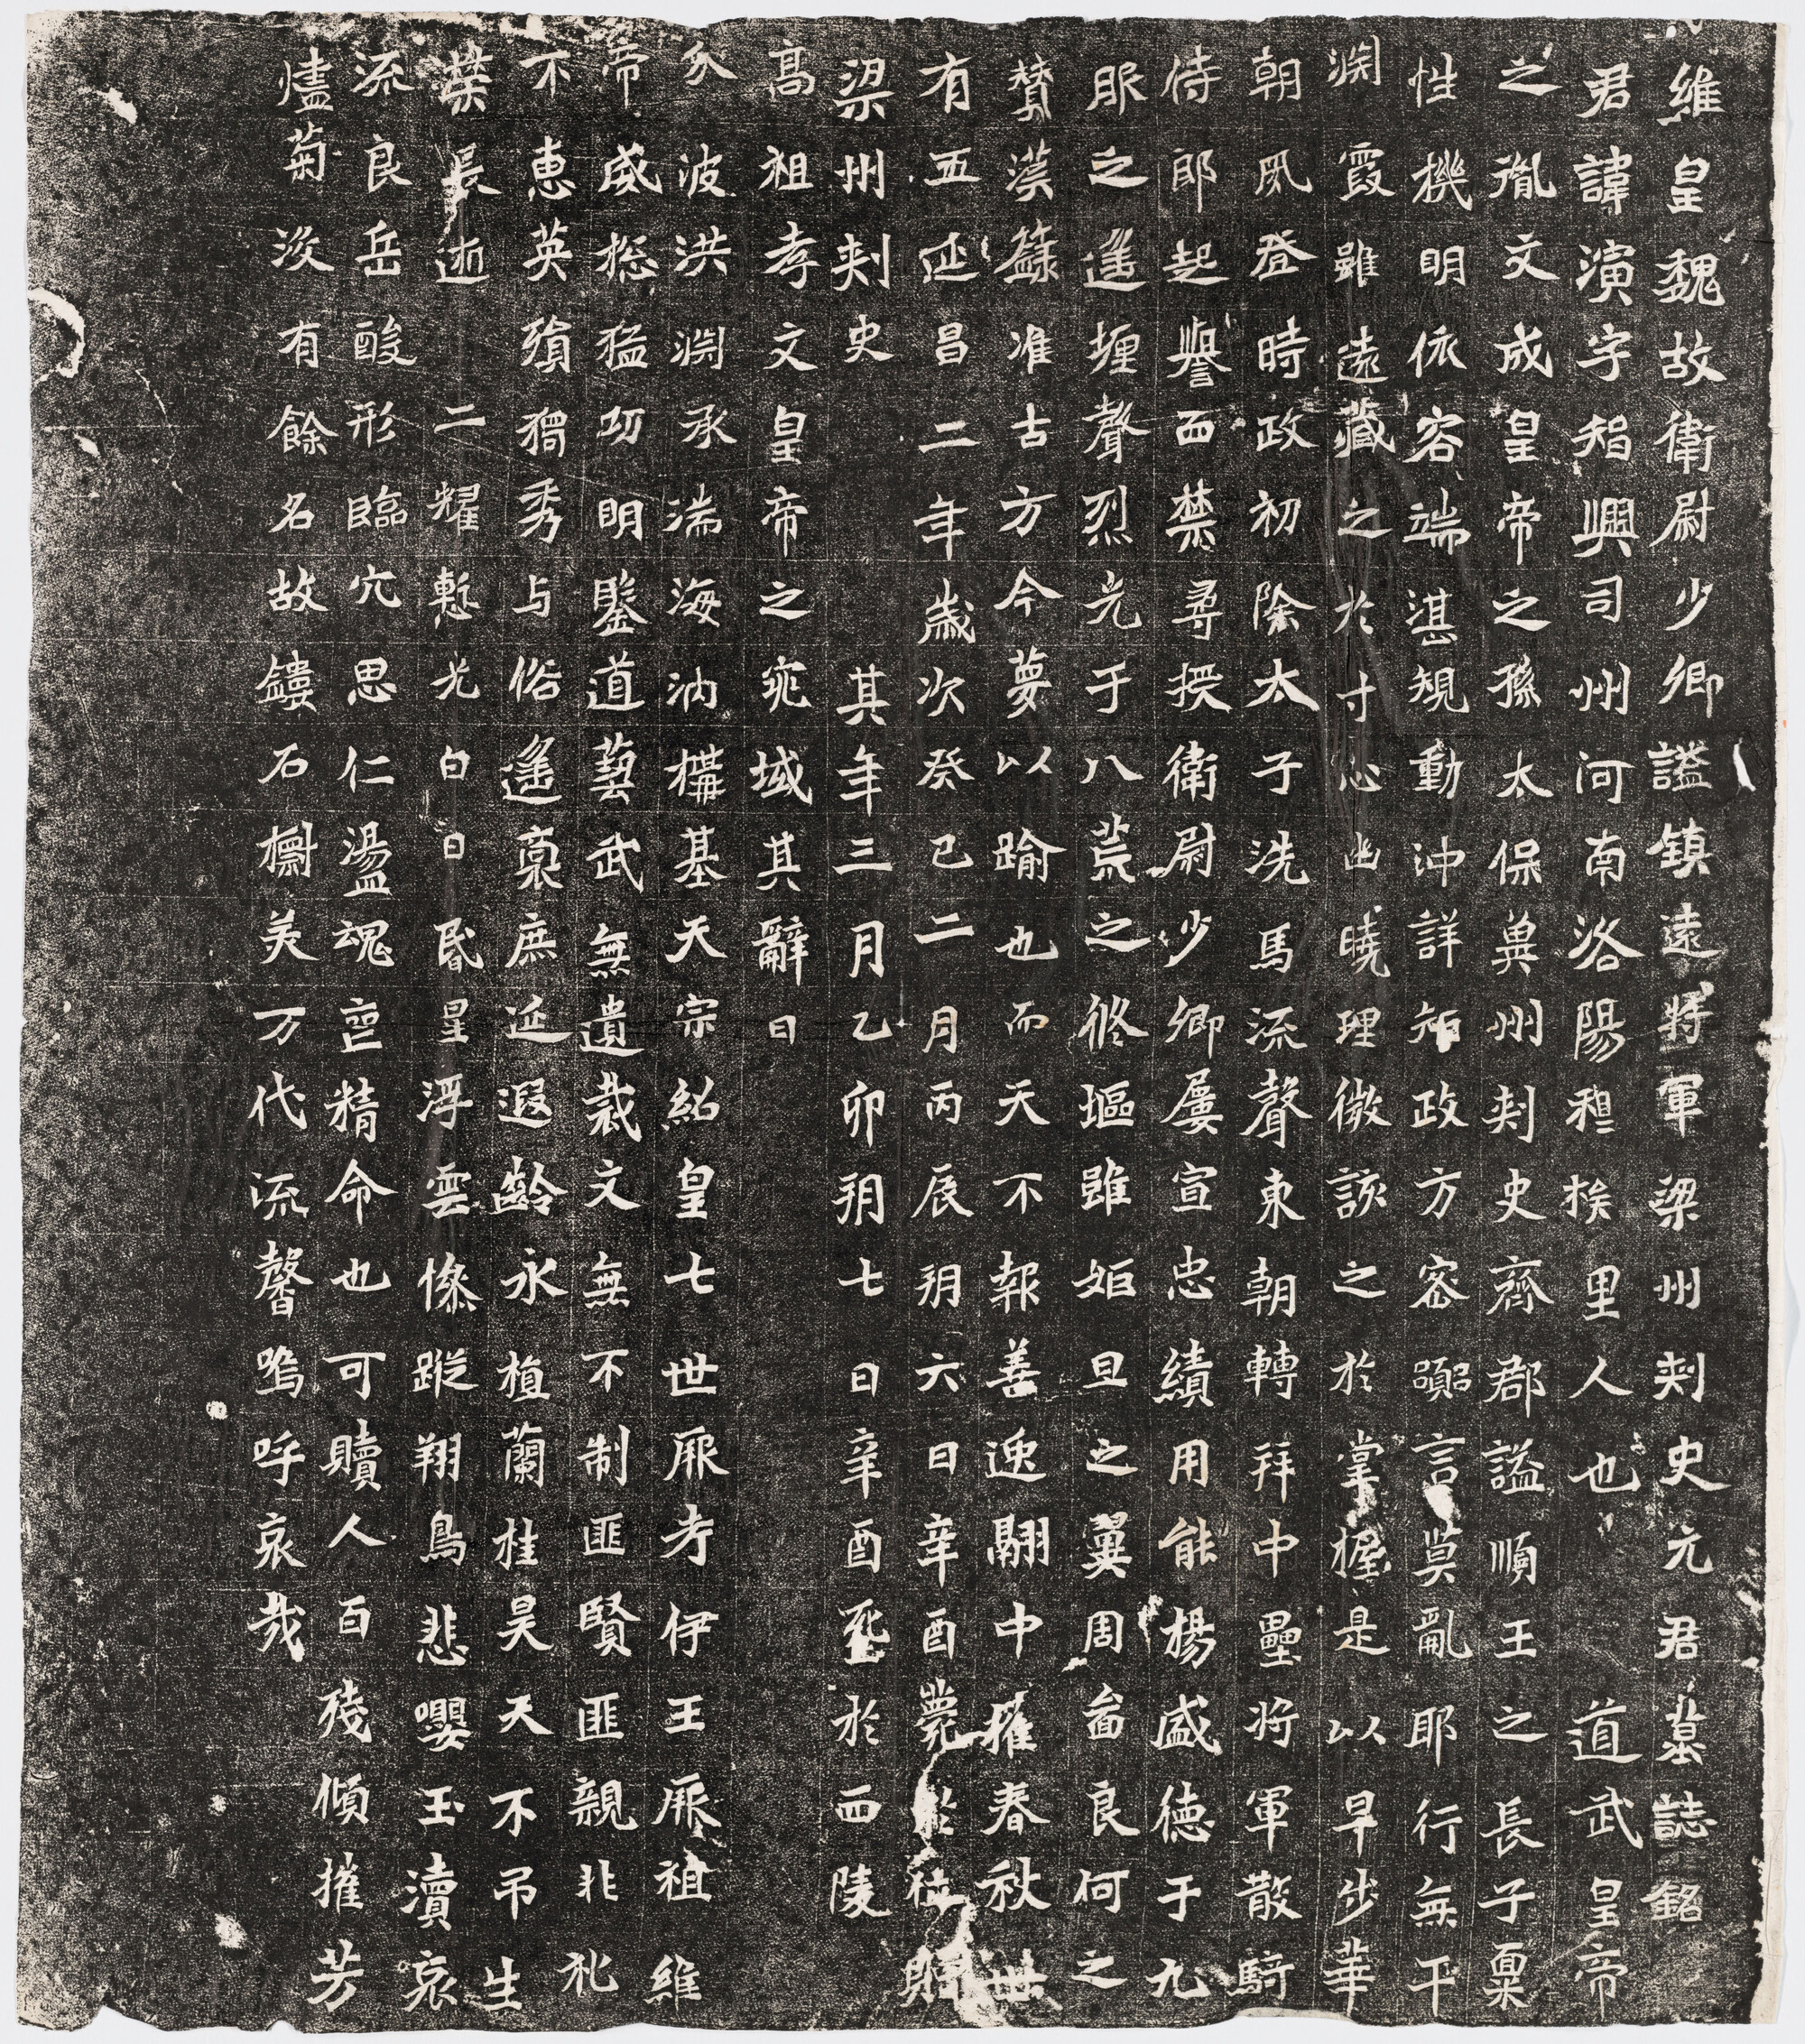 維皇魏故衛尉少卿謚鎮遠將軍梁州刾史元君墓誌銘
君諱演字智興司州河南洛陽穆族里人也 道武皇帝
之胤文成皇帝之孫太保兾州刾史齊郡謚順王之長子稟
性機明依容端湛規動沖詳矩政方密顎言莫亂耶行無干
渕霞雖遠藏之於寸心幽曉理微該之於掌握是以早步華
朝夙登時政初除太子洗馬流聲東朝轉拜中壘將軍散騎
侍郎起譽西禁尋授衛尉少卿屢宣忠績用能楊盛德于九
服之遥堙聲烈光于八荒之脩堰雖姬旦之翼周畱良何之
賛漢籙准古方今蔑以踰也而天不報善迯翮中摧春秋世
有五延昌二年歲次癸巳二月丙辰朔六日辛酉薨於位贈
梁州刾史 其年三月乙卯朔七日辛酉葬於西陵
髙祖孝文皇帝之兆域其辭曰
攸波洪渊承湍海汭構基天宗紹皇七世厥考伊王厥祖維
帝威捴猛切明鑒道藝武無遺裁文無不制匪賢匪親非礼
不惠英殞獨秀与俗遥裹庶延遐齡永植蘭桂昊天不吊生
榮長逝 二耀慙光白日昏星浮雲滌蹤翔鳥悲嚶玉瀆哀
流良岳酸形臨穴思仁湯盪魂亡精命也可贖人百殘傾摧芳
燼菊沒有餘名故鏤石櫥美万代流馨嗚呼哀哉